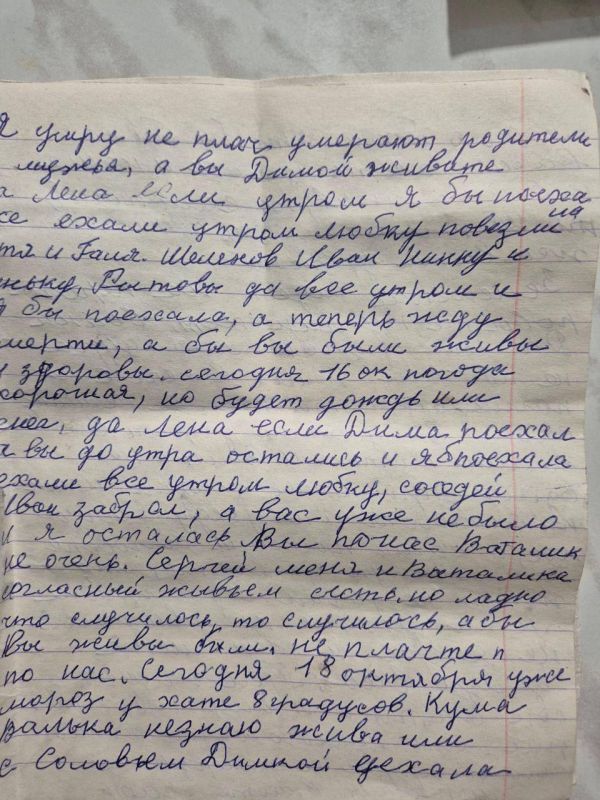 я умру не плач умерают родители
мужья, а вы Димой живите
а Лена если утром я бы поеха
се ехали утром любку повезли на
тя и Галя. Шеленов Иван Нинку и
ньку, Рытовы да все утром и
я бы поехала, а теперь жду
мерти, а бы вы были живы
и здоровы. сегодня 16 ок погода
хорошая, но будет дождь или
снег, да Лена если Дима поехал
а вы до утра остались и я б поехала
ехали все утром любку, соседей
Иван забрал, а вас уже небыло
и я осталась Вы понас Ваталик
не очень. Сергей меня и Ваталика
огласный живьем сесть, но ладно
что случилось, то случилось, абы
Вы живы были. не плачте п
по нас. Сегодня 18 октября уже
мороз у хате 8 градусов. Кума
Валька незнаю жива или
с Соловьем Димкой уехала